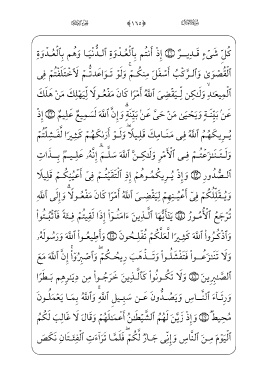 كُلِّ شَىْءٍ قَدِيرٌ ۝ إِذْ أَنتُم بِٱلْعُدْوَةِ ٱلدُّنْيَا وَهُم بِٱلْعُدْوَةِ
ٱلْقُصْوَىٰ وَٱلرَّكْبُ أَسْفَلَ مِنكُمْ ۚ وَلَوْ تَوَاعَدتُّمْ لَٱخْتَلَفْتُمْ فِى
ٱلْمِيعَـٰدِ وَلَـٰكِن لِّيَقْضِىَ ٱللَّهُ أَمْرًا كَانَ مَفْعُولًا لِّيَهْلِكَ مَنْ هَلَكَ
عَنۢ بَيِّنَةٍ وَيَحْيَىٰ مَنْ حَىَّ عَنۢ بَيِّنَةٍ ۗ وَإِنَّ ٱللَّهَ لَسَمِيعٌ عَلِيمٌ ۝ إِذْ
يُرِيكَهُمُ ٱللَّهُ فِى مَنَامِكَ قَلِيلًا ۖ وَلَوْ أَرَىٰكَهُمْ كَثِيرًا لَّفَشِلْتُمْ
وَلَتَنَـٰزَعْتُمْ فِى ٱلْأَمْرِ وَلَـٰكِنَّ ٱللَّهَ سَلَّمَ ۗ إِنَّهُۥ عَلِيمٌۢ بِذَاتِ
ٱلصُّدُورِ ۝ وَإِذْ يُرِيكُمُوهُمْ إِذِ ٱلْتَقَيْتُمْ فِىٓ أَعْيُنِكُمْ قَلِيلًا
وَيُقَلِّلُكُمْ فِىٓ أَعْيُنِهِمْ لِيَقْضِىَ ٱللَّهُ أَمْرًا كَانَ مَفْعُولًا ۗ وَإِلَى ٱللَّهِ
تُرْجَعُ ٱلْأُمُورُ ۝ يَـٰٓأَيُّهَا ٱلَّذِينَ ءَامَنُوٓا۟ إِذَا لَقِيتُمْ فِئَةً فَٱثْبُتُوا۟
وَٱذْكُرُوا۟ ٱللَّهَ كَثِيرًا لَّعَلَّكُمْ تُفْلِحُونَ ۝ وَأَطِيعُوا۟ ٱللَّهَ وَرَسُولَهُۥ
وَلَا تَنَـٰزَعُوا۟ فَتَفْشَلُوا۟ وَتَذْهَبَ رِيحُكُمْ ۖ وَٱصْبِرُوٓا۟ ۚ إِنَّ ٱللَّهَ مَعَ
ٱلصَّـٰبِرِينَ ۝ وَلَا تَكُونُوا۟ كَٱلَّذِينَ خَرَجُوا۟ مِن دِيَـٰرِهِم بَطَرًا
وَرِئَآءَ ٱلنَّاسِ وَيَصُدُّونَ عَن سَبِيلِ ٱللَّهِ ۚ وَٱللَّهُ بِمَا يَعْمَلُونَ
مُحِيطٌ ۝ وَإِذْ زَيَّنَ لَهُمُ ٱلشَّيْطَـٰنُ أَعْمَـٰلَهُمْ وَقَالَ لَا غَالِبَ لَكُمُ
ٱلْيَوْمَ مِنَ ٱلنَّاسِ وَإِنِّى جَارٌ لَّكُمْ ۖ فَلَمَّا تَرَآءَتِ ٱلْفِئَتَانِ نَكَصَ